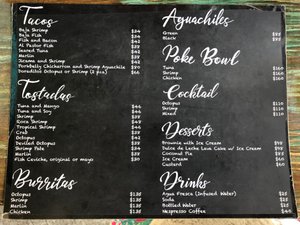 Tacos
Baja Shrimp $34
Baja Fish $34
Fish and Bacon $42
Al Pastor Fish $42
Seared Tuna $42
Marlin $42
Sesame and Shrimp
Porkbelly Chicharron and Shrimp Aguachile
Doraditos Octopus or Shrimp (2 pcs) $66
Tostadas
Tuna and Mango
Tuna and Soy
Shrimp
Coco Shrimp
Tropical Shrimp
Crab
Octopus
Deviled Octopus
Shrimp Pate
Marlin
Fish Ceviche, original or mayo
Burritas
Octopus $135
Shrimp $135
Marlin $135
Chicken $135
Aguachiles
Green
Black
Poke Bowl
Tuna $160
Shrimp $160
Chicken $160
Cocktail
Octopus $110
Shrimp $110
Mixed $110
Desserts
Brownie with Ice Cream
Dulce de Leche Lava Cake w/ Ice Cream
Coconut Pie
Ice Cream $60
Custard $60
Drinks
Agua Fresca (Infused Water) $25
Soda $25
Bottled Water $25
Nespresso Coffee